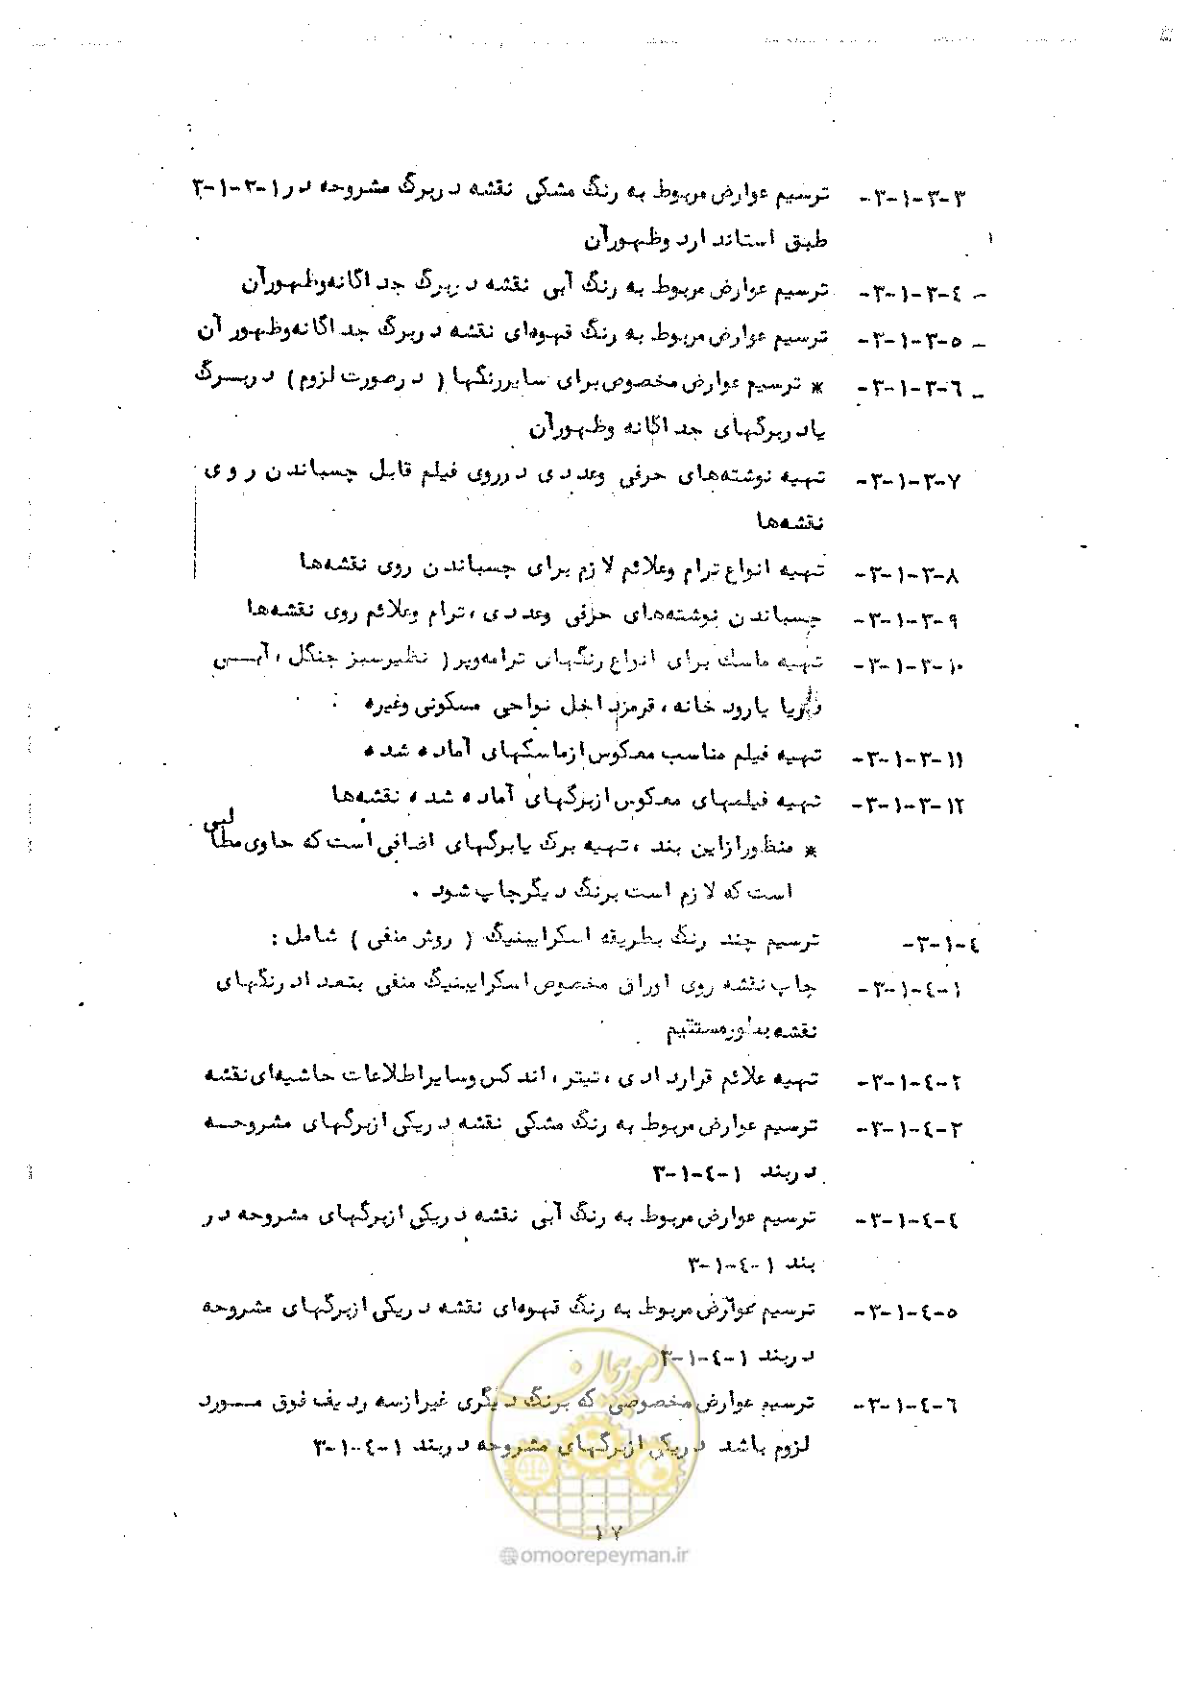 ۳-۱-۳-۳- ترسیم عوارض مربوط به رنگ مشکی نقشه در برگ مشروحه در ۱-۳-۱-۳
طبق استاندارد و ظهور آن
۳-۱-۳-۴- ترسیم عوارض مربوط به رنگ آبی نقشه در برگ جداگانه و ظهور آن
۳-۱-۳-۵- ترسیم عوارض مربوط به رنگ قهوه‌ای نقشه در برگ جداگانه و ظهور آن
۳-۱-۳-۶- * ترسیم عوارض مخصوص برای سایر رنگها ( در صورت لزوم ) در بسرگ
یا در برگهای جداگانه و ظهور آن
۳-۱-۳-۷- تهیه نوشته‌های حرفی و عددی در روی فیلم قابل چسباندن روی
نقشه‌ها
۳-۱-۳-۸- تهیه انواع ترام و علائم لازم برای چسباندن روی نقشه‌ها
۳-۱-۳-۹- چسباندن نوشته‌های حرفی و عددی ، ترام و علائم روی نقشه‌ها
۳-۱-۳-۱۰- تهیه ماسک برای انواع رنگهای ترامه‌ویر ( نظیر سبز جنگل ، آبی
دریا یا رودخانه ، قرمز داخل نواحی مسکونی و غیره
۳-۱-۳-۱۱- تهیه فیلم مناسب معکوس از ماسکهای آماده شده
۳-۱-۳-۱۲- تهیه فیلمهای معکوس از برگهای آماده شده نقشه‌ها
* منظور از این بند ، تهیه برگ یا برگهای اضافی است که حاوی مطالبی
است که لازم است برنگ دیگر چاپ شود .
۳-۱-۴- ترسیم چند رنگ بطریقه اسکرایبینیگ ( روش منفی ) شامل :
۳-۱-۴-۱- چاپ نقشه روی اوراق مخصوص اسکرایبینیگ منفی بتعداد رنگهای
نقشه بطور مستقیم
۳-۱-۴-۲- تهیه علائم قراردادی ، تیتر ، اندکس و سایر اطلاعات حاشیه‌ای نقشه
۳-۱-۴-۳- ترسیم عوارض مربوط به رنگ مشکی نقشه در یکی از برگهای مشروحه
در بند ۱-۴-۱-۳
۳-۱-۴-۴- ترسیم عوارض مربوط به رنگ آبی نقشه در یکی از برگهای مشروحه در
بند ۱-۴-۱-۳
۳-۱-۴-۵- ترسیم عوارض مربوط به رنگ قهوه‌ای نقشه در یکی از برگهای مشروحه
در بند ۱-۴-۱-۳
۳-۱-۴-۶- ترسیم عوارض مخصوصی که برنگ دیگری غیر از سه ردیف فوق مورد
لزوم باشد در یکی از برگهای مشروحه در بند ۱-۴-۱-۳
امور پیمان
۱۷
@omoorepeyman.ir